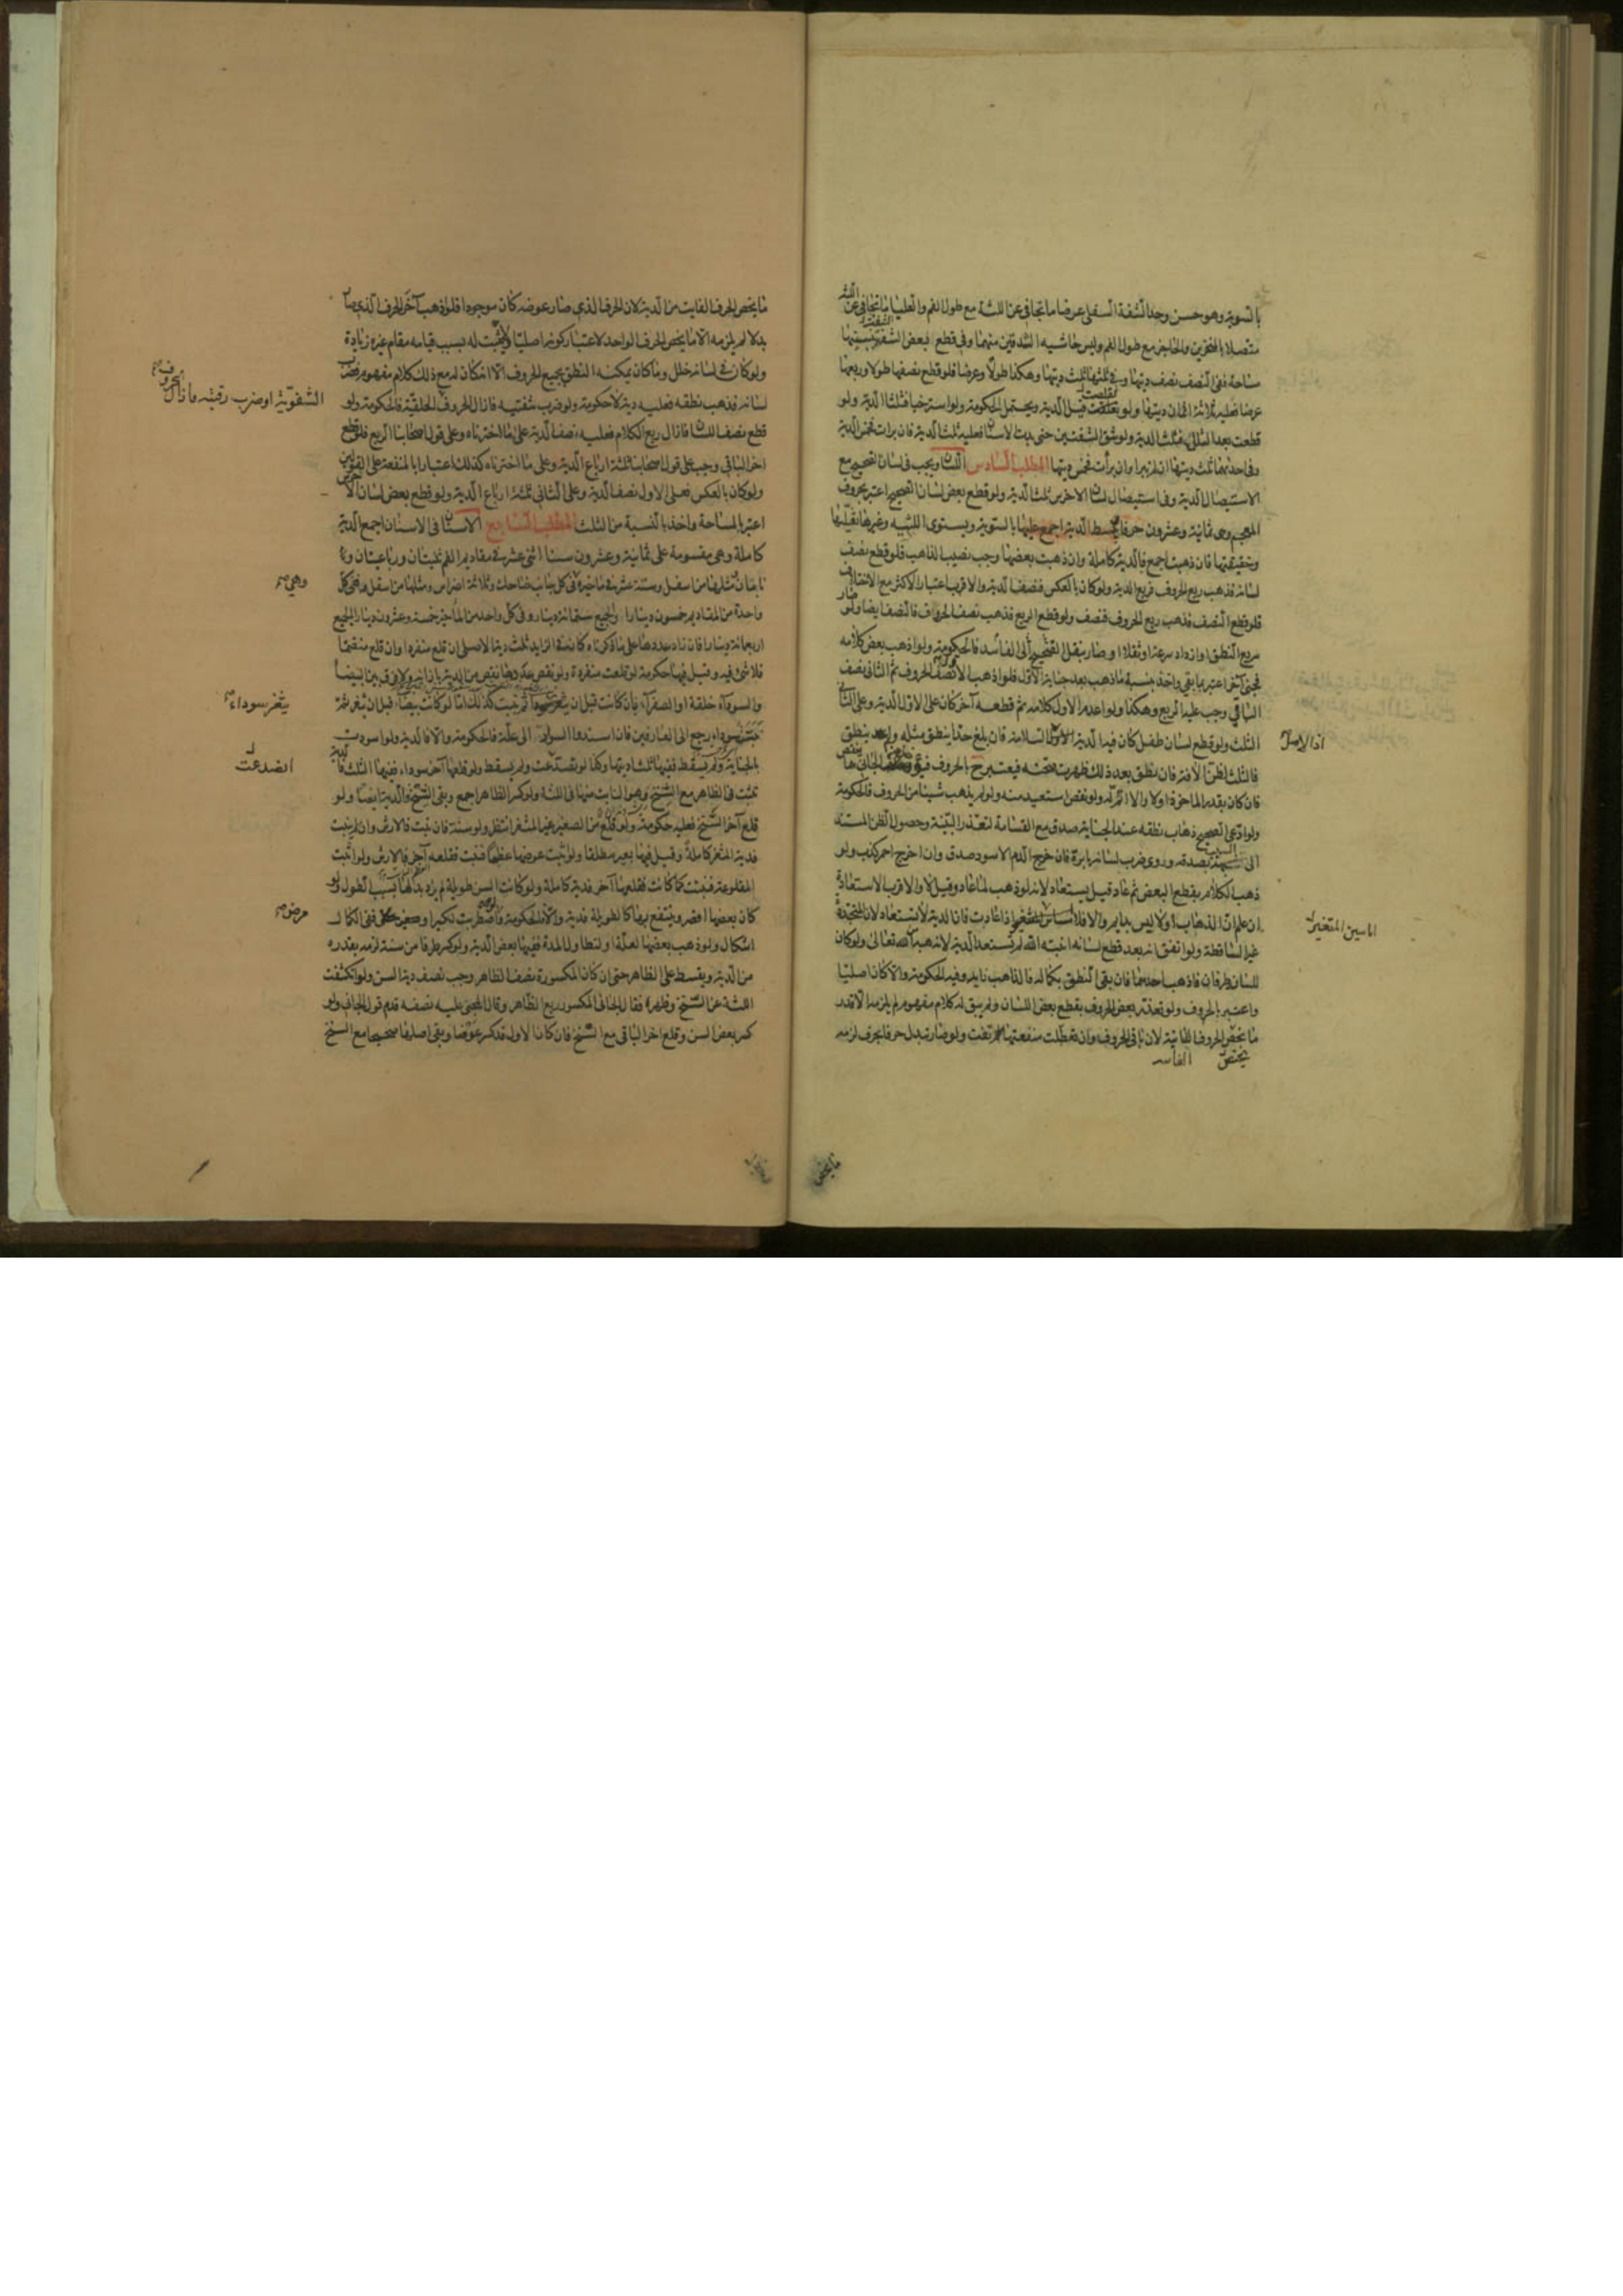 بالتسوية وهو حسن وحد الشفة السفلى عرضا ما تجافى عن اللثة مع طول الفم والعليا ما تجافى عن اللثة
متصلا بالمنخرين والحاجز مع طول الفم وليس حاشيه الشدقين منهما وفي قطع بعض الشفة بنسبتها
مساحة ففي النصف نصف ديتها وفي ثلثها ثلث ديتها وهكذا طولا وعرضا فلو قطع نصفها طولا وربعها
عرضا فعليه ثلاثة اثمان ديتها ولو تقلصت قيل الدية ويحتمل الحكومة ولو استرخيا فثلثا الدية ولو
قطعت بعد الشلل فثلث الدية ولو شق الشفتين حتى بدت الاسنان فعليه ثلث الدية فان برات فخمس الدية
وفي احديهما ثلث ديتها ان لم تبرا وان برأت فخمس ديتها المطلب السادس اللسان ويجب في لسان الصحيح مع
الاستيصال الدية وفي استيصال لسان الاخرس ثلث الدية ولو قطع بعض لسان الصحيح اعتبر بحروف
المعجم وهي ثمانية وعشرون حرفا تبسط الدية اجمع عليها بالسوية ويستوى اللسنية وغيرها ثقيلها
وخفيفتها فان ذهبت اجمع فالدية كاملة وان ذهبت بعضها وجب نصيب الذاهب فلو قطع نصف
لسانه فذهب ربع الحروف فربع الدية ولو كان بالعكس فنصف الدية والاقرب اعتبار الاكثر مع الاختلاف
فلو قطع النصف فذهب ربع الحروف فنصف ولو قطع الربع فذهب نصف الحروف فالنصف ايضا ولو صار
سريع النطق او ازداد سرعة او ثقلا او صار ينقل الفصيح الى الفاسد فالحكومة ولو اذهب بعض كلامه
فجنى آخر اعتبر بما بقي واخذ بنسبة ما ذهب بعد جناية الاول فلو اذهب الاول نصف الحروف ثم الثاني نصف
الباقي وجب عليه الربع وهكذا ولو اعدم الاول كلامه ثم قطعه آخر كان على الاول الدية وعلى الثاني
الثلث ولو قطع لسان طفل كان فيه الدية السلامة فان بلغ حدا ينطق مثله ولم ينطق
اذا الاصل
فالثلث لظن الافة فان نطق بعد ذلك ظهرت صحته فيعتبر ح بالحروف الجاني ما ينقص
فان كان بقدر الماخوذ اولا والا اتم له ولو نقص استعيد منه ولو لم يذهب شيئا من الحروف فالحكومة
ولو ادعى الصحيح ذهاب نطقه عند الجناية صدق مع القسامة لتعذر البينة وحصول الظن المستند
الى السبب بصدقه وروى ضرب لسانه بابرة فان خرج الدم الاسود صدق وان اخرج احمر كذب ولو
ذهب الكلام بقطع البعض ثم عاد قيل يستعاد لانه لو ذهب لما عاد وقيل لا والاقرب الاستعادة
ان علم ان الذهاب اولا ليس بدايم والا فلا اذا عادت فان الدية لا تستعاد لان المتجددة
اما سن المثغر
غير الساقطة ولو اتفق انه بعد قطع لسانه انبته الله لم تستعد الدية لانه هبة من الله تعالى ولو كان
للسان طرفان فاذهب احدهما فان بقى النطق بكماله فالذاهب زايد وفيه الحكومة والا كان اصليا
واعتبر بالحروف ولو تعذر بعض الحروف بقطع بعض اللسان ولم يبق له كلام مفهوم لم يلزمه الا قدر
ما يخص الحروف الفايتة لان باقي الحروف وان تعطلت منفعتها لم تفت ولو صار يبدل حرفا بحرف لزمه
ما يخص
ما يخص الحرف الفايت من الدية لان الحرف الذي صار عوضه كان موجودا فلو ذهب آخر الحرف الذي صار
بدلا لم يلزمه الا ما يخص الحرف الواحد لاعتبار كونه اصليا ولا يثبت له بسبب قيامه مقام غيره زيادة
ولو كان في لسانه خلل وما كان يمكنه النطق بجميع الحروف الا انه كان له مع ذلك كلام مفهوم فضرب
لسانه فذهب نطقه فعليه دية لا حكومة ولو ضرب شفتيه فازال الحروف الحلقية فالحكومة ولو
الشفوية او ضرب رقبته فازال الحروف
قطع نصف اللسان فازال ربع الكلام فعليه نصف الدية على ما اخترناه وعلى قول اصحابنا الربع فلو قطع
اخر الباقي وجب على قول اصحابنا ثلثة ارباع الدية وعلى ما اخترناه كذلك اعتبارا بالمنفعة على القولين
ولو كان بالعكس فعلى الاول نصف الدية وعلى الثاني ثلثة ارباع الدية ولو قطع بعض لسان الاخرس
اعتبر بالمساحة واخذ بالنسبة من الثلث المطلب السابع الاسنان في الاسنان اجمع الدية
كاملة وهي مقسومة على ثمانية وعشرون سنا اثنى عشر في مقاديم الفم ثنيتان ورباعيتان و
نابان ومثلها من اسفل وستة عشر في ماخيره في كل جانب ضاحك وثلاثة اضراس ومثلها من اسفل وفي كل
وهي
واحدة من المقاديم خمسون دينارا والجميع ستمائة دينار وفي كل واحد من المآخير خمسة وعشرون دينارا الجميع
اربعمائة دينار فان زاد عددها على ما ذكرناه كان في الزايد ثلث دية الاصلى ان قلع منفردا وان قلع منضما
فلا شئ فيه وقيل فيها حكومة لو قلعت منفردة ولو نقص عددها نقص من الدية بازائه ولا فرق بين البيضا
والسوداء خلقة او الصفراء بان كانت قبل ان يثغر ثم نبتت كذلك اما لو كانت بيضا قبل ان يثغر ثم
يثغر سوداء
نبتت سوداء رجع الى العارفين فان اسندوا السواد الى علة فالحكومة والا فالدية ولو اسودت
بالجناية ولم تسقط ففيها ثلثا ديتها وكذا لو تصدعت ولم يسقط ولو قلعها آخر سوداء ففيها الثلث
انصدعت
تثبت في الظاهر مع السنخ وهو النابت منها في اللثة ولو كسر الظاهر اجمع وبقى السنخ فالدية ايضا ولو
قلع آخر السنخ فعليه حكومة ولو قلع من الصغير غير المثغر انتظر ولو سنة فان نبت فالارش وان لم ينبت
فدية المثغر كاملة وقيل فيها بعير مطلقا ولو نبت عوضها عظما فنبت فقلعه آخر فالارش ولو انبت
المقلوعة فنبتت كما كانت فقلعها آخر فدية كاملة ولو كانت السن طويلة لم يزد بدلها بسبب الطول ولو
كان بعضها اقصر وينتفع بها كالطويلة فدية والا فالحكومة ولو اضطربت لكبر او صغر ففي الكمال
مرض
اشكال ولو ذهب بعضها لعلة او لتطاول المدة ففيها بعض الدية ولو كسر طرفا من سنه لزمه بقدره
من الدية ويقسط على الظاهر حتى ان كان المكسورة نصف الظاهر وجب نصف دية السن ولو انكشفت
اللثة عن السنخ وظهر فقال الجاني المكسور ربع الظاهر وقال المجني عليه نصفه قدم قول الجاني ولو
كسر بعض السن وقلع اخر الباقي مع السنخ فان كان الاول قد كسر عرضا وبقى اصلها صحيحا مع السنخ